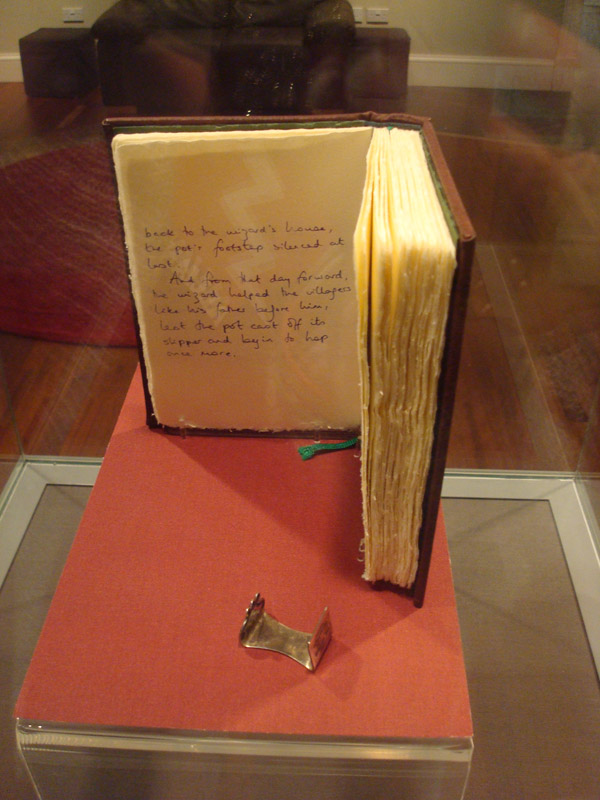 back to the wizard's house,
the pot's footstep silenced at
last.
And from that day forward,
the wizard helped the villagers
like his father before him,
lest the pot cast off its
slipper and begin to hop
once more.